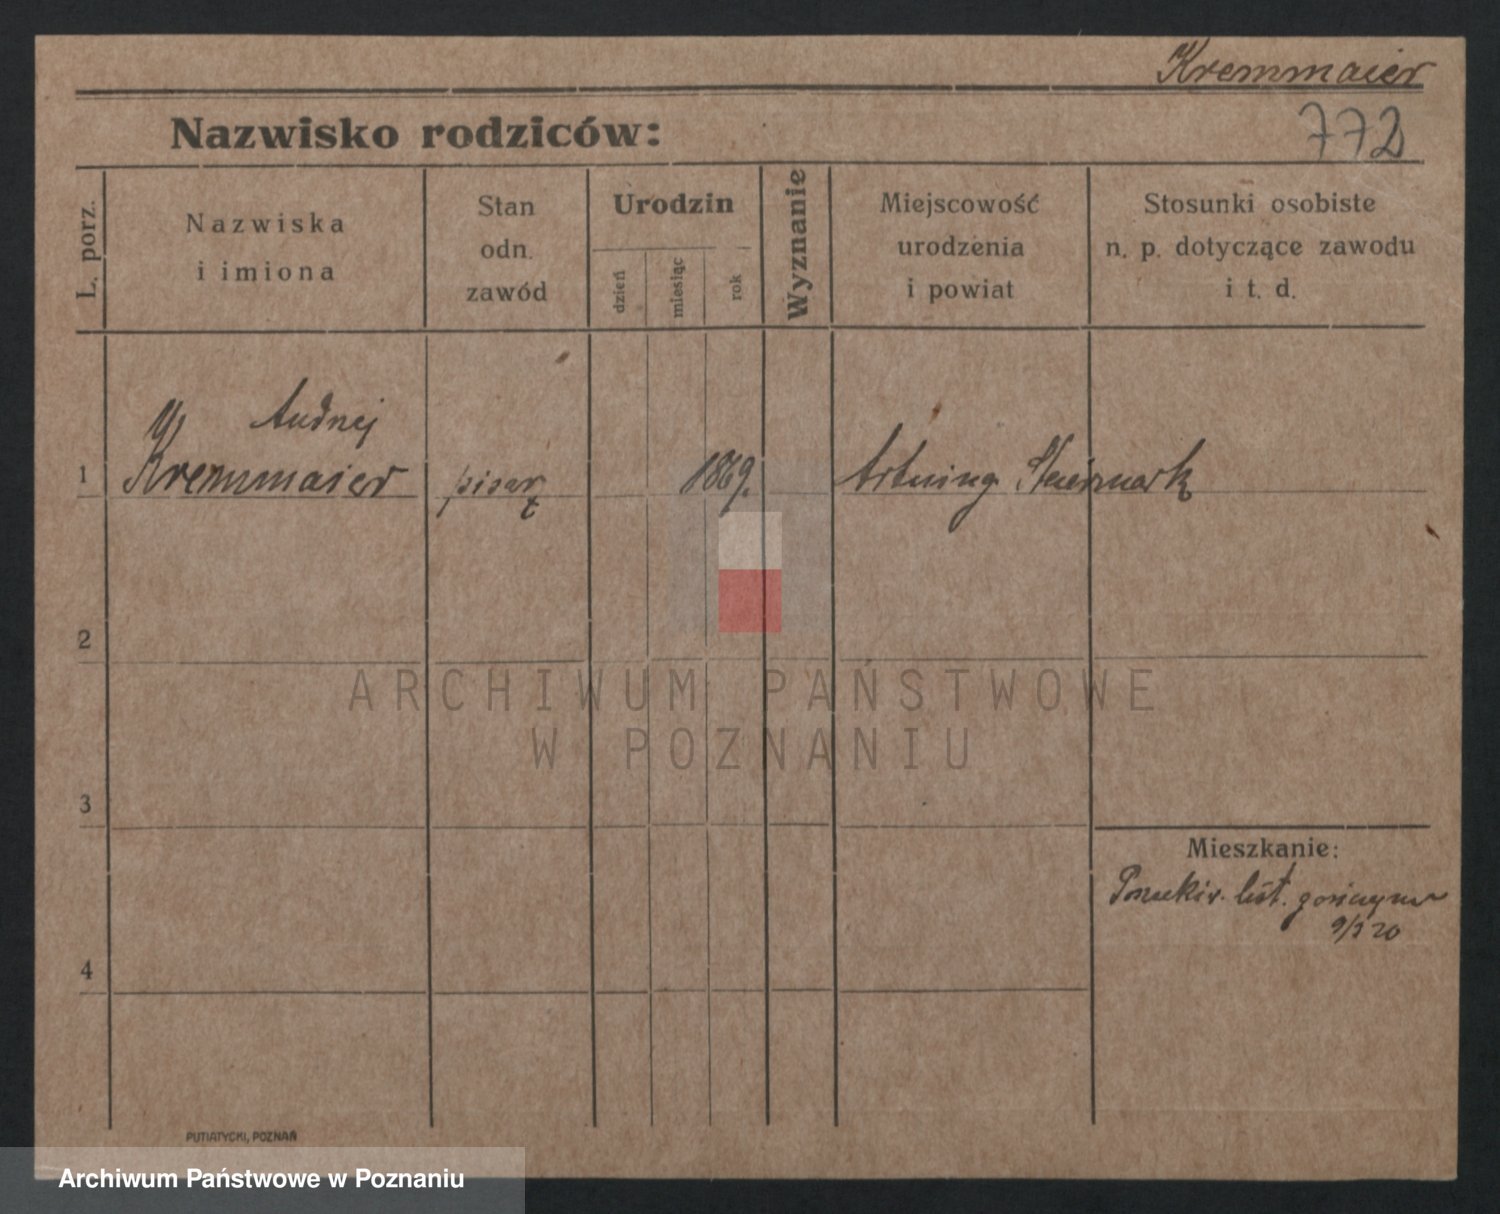 Kremmaier
Nazwisko rodziców:
772
L. porz.
Nazwiska
i imiona
Stan
odn.
zawód
Urodzin
dzień
miesiąc
rok
Wyznanie
Miejscowość
urodzenia
i powiat
Stosunki osobiste
n. p. dotyczące zawodu
i t. d.
1
Kremmaier
pisarz
1869.
Steiermark
2
3
4
Mieszkanie:
list.
20
PUTIATYCKI, POZNAŃ
ARCHIWUM PAŃSTWOWE
W POZNANIU
Archiwum Państwowe w Poznaniu